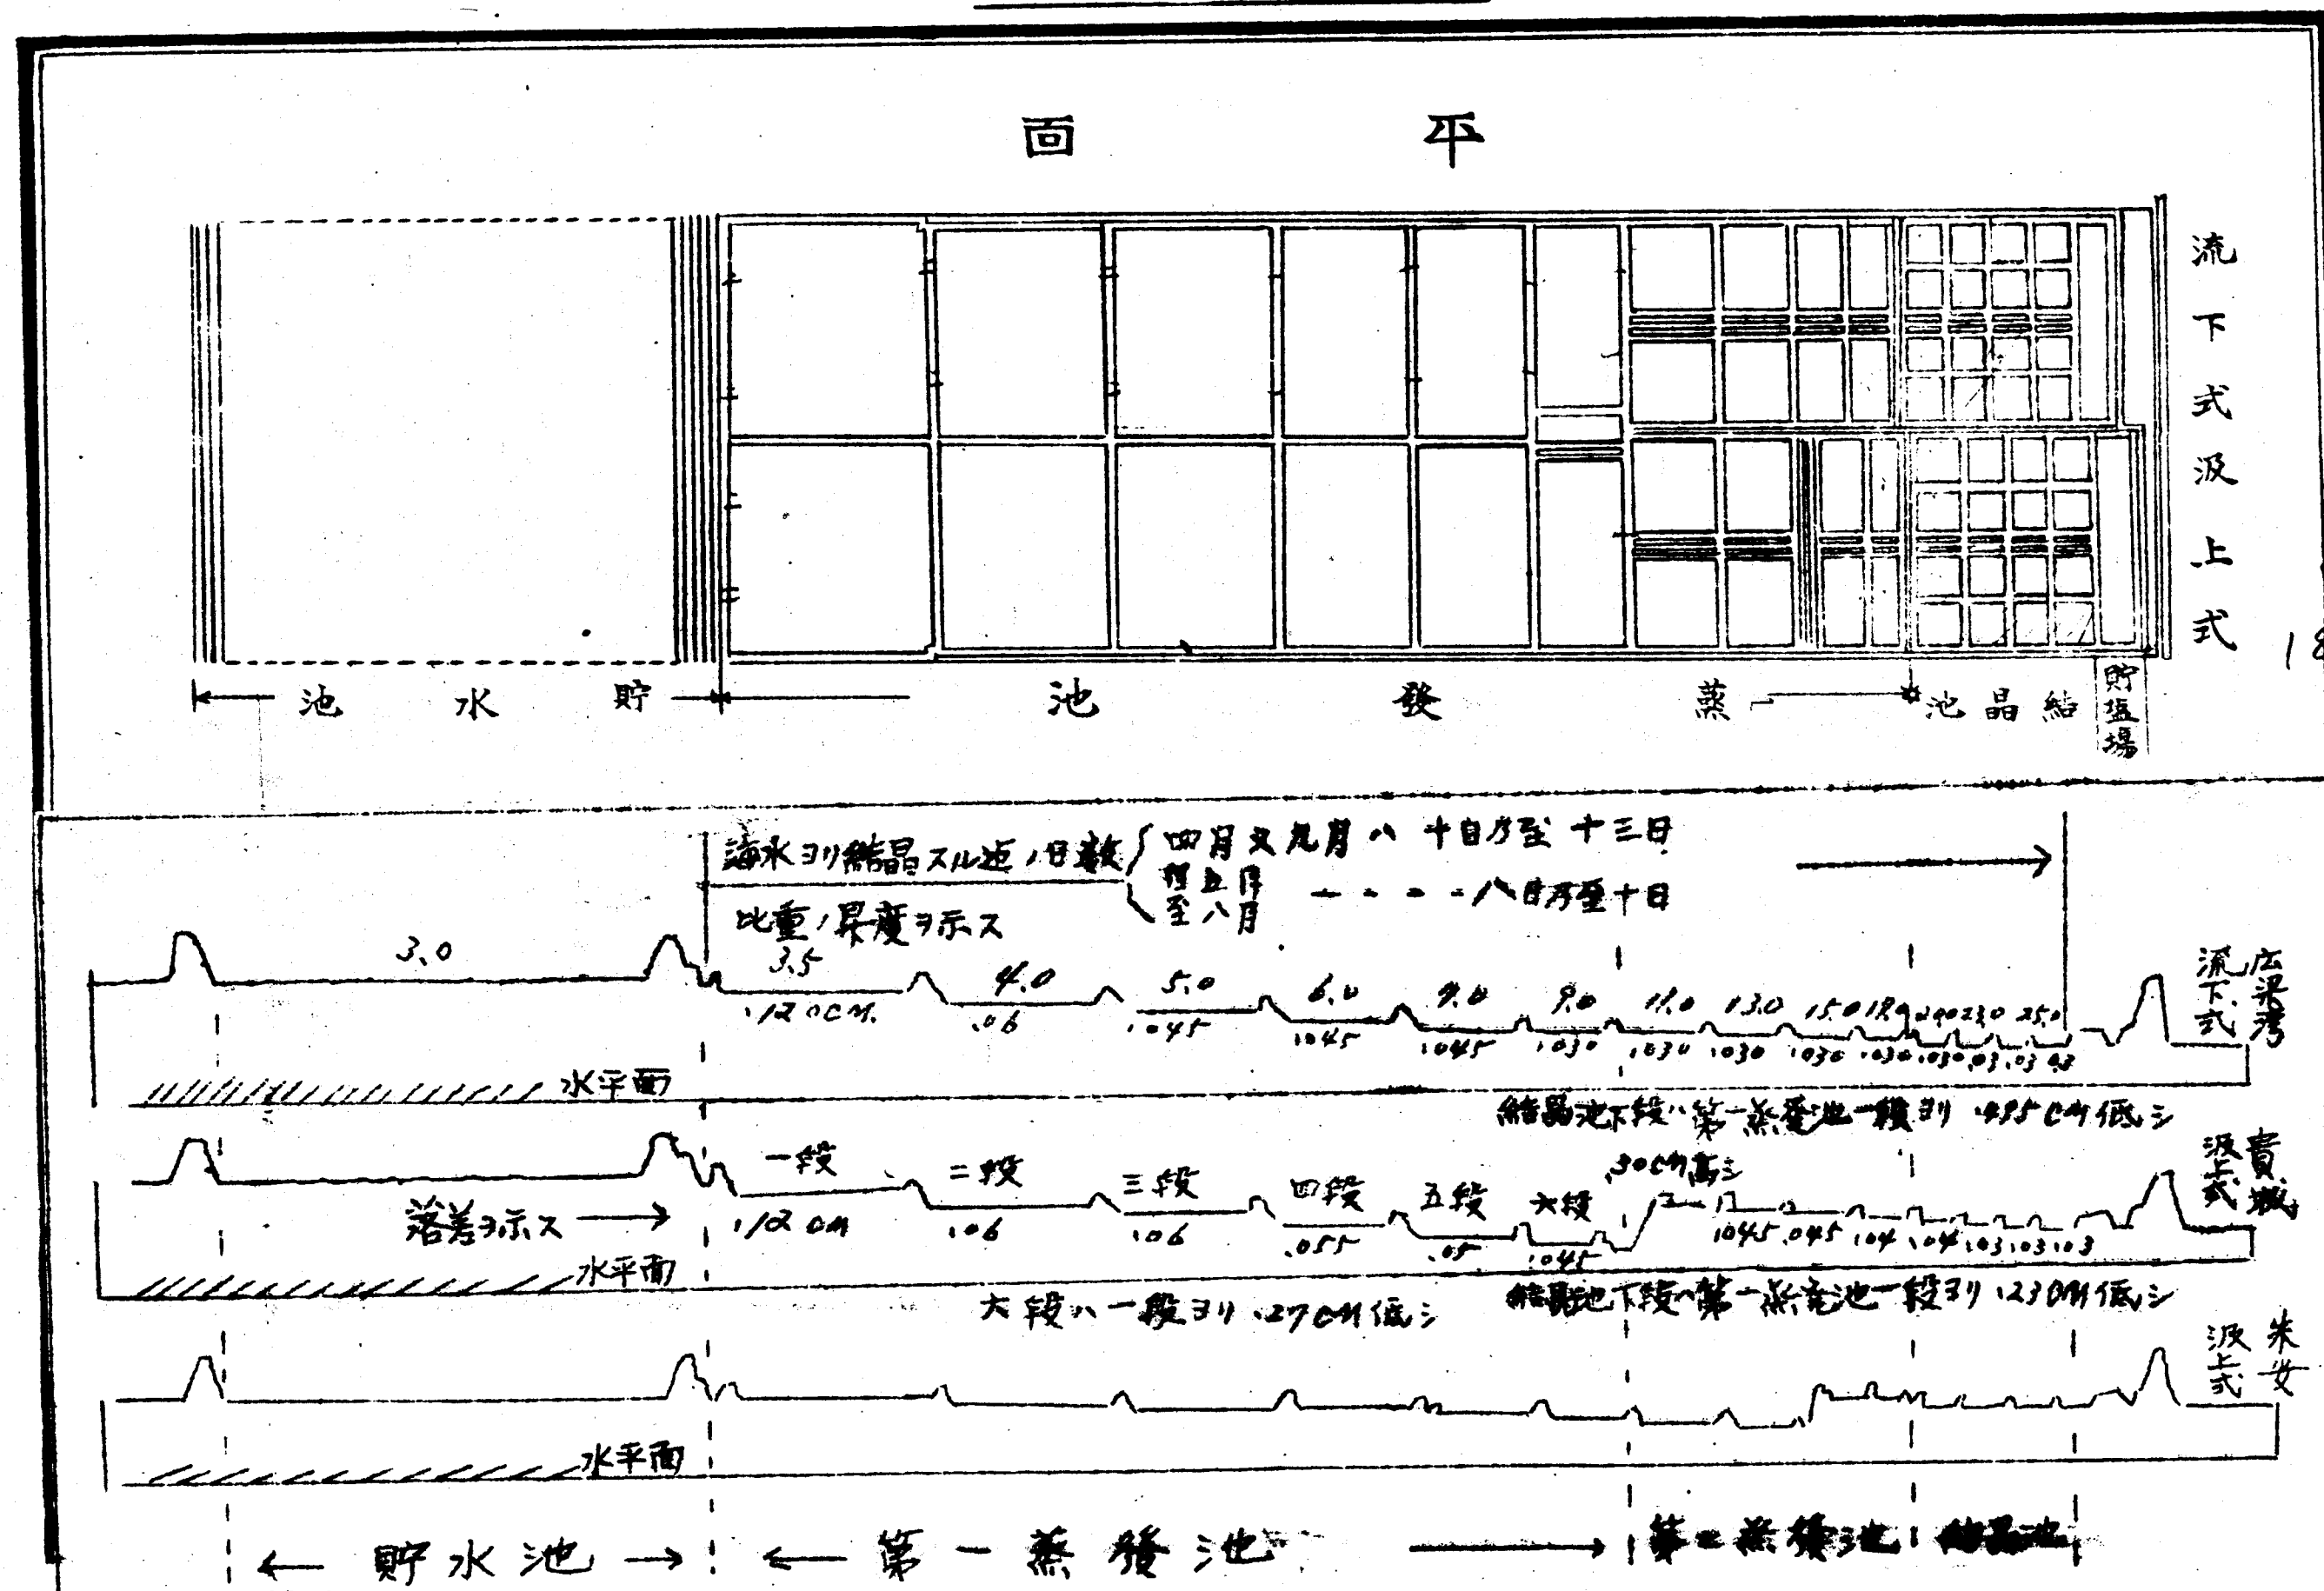 平面
流下式
汲上式
貯水池
蒸發池
結晶池
貯塩場
18
海水ヨリ結晶スル迄ノ日数
四月又九月ハ十日乃至十三日
至八月
八日乃至十日
比重ノ昇度ヲ示ス
3.0 3.5 4.0 5.0 6.0 7.0 9.0 11.0 13.0 15.0 19.0 20.0 23.0 25.0
.120CM. .06 .045 .045 .045 .030 .030 .030 .030 .030 .030 .03 .03 0.3
広梁湾
流下式
水平面
結晶池下段ハ第一蒸発池一段ヨリ .495CM低シ
一段 二段 三段 四段 五段 六段
.30CM高シ
落差ヲ示ス
.12CM .06 .06 .055 .05 .045 .045 .045 .04 .04 .03 .03 .03
貴城
汲上式
水平面
六段ハ一段ヨリ .27CM低シ
結晶池下段ハ第一蒸発池一段ヨリ .23CM低シ
朱安
汲上式
水平面
貯水池
第一蒸發池
第二蒸發池
結晶池